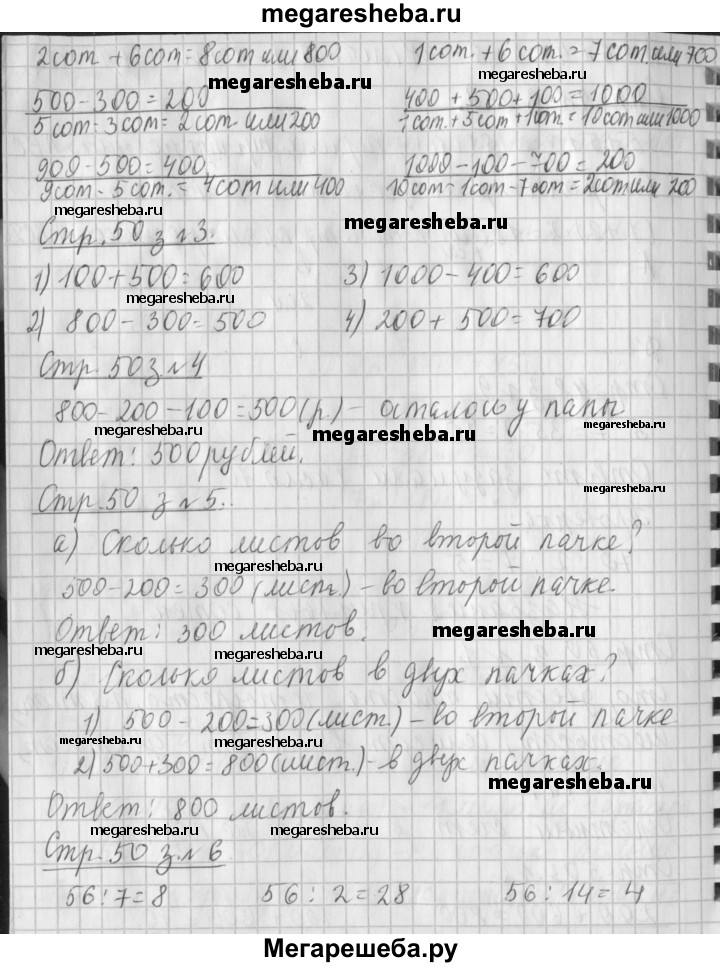 megaresheba.ru
2сот + 6сот = 8сот или 800 1сот. + 6 сот. = 7 сот. или 700
megaresheba.ru megaresheba.ru
500 - 300 = 200 400 + 500 + 100 = 1000
5сот - 3сот = 2сот или 200 4сот. + 5сот + 1сот. = 10сот или 1000
900 - 500 = 400 1000 - 100 - 700 = 200
9сот - 5сот. = 4сот или 400 10сот - 1сот - 7сот = 2сот или 200
megaresheba.ru megaresheba.ru
Стр. 50 з №3.
1) 100 + 500 = 600 3) 1000 - 400 = 600
megaresheba.ru
2) 800 - 300 = 500 4) 200 + 500 = 700
Стр. 50 з №4 megaresheba.ru
800 - 200 - 100 = 500 (р.) - осталось у папы
megaresheba.ru megaresheba.ru megaresheba.ru
Ответ: 500 рублей.
Стр. 50 з №5. megaresheba.ru
а) Сколько листов во второй пачке?
megaresheba.ru
500 - 200 = 300 (лист.) - во второй пачке.
Ответ: 300 листов. megaresheba.ru
megaresheba.ru megaresheba.ru
б) Сколько листов в двух пачках?
1) 500 - 200 = 300 (лист.) - во второй пачке
megaresheba.ru megaresheba.ru megaresheba.ru
2) 500 + 300 = 800 (лист.) - в двух пачках.
megaresheba.ru
Ответ: 800 листов.
megaresheba.ru megaresheba.ru
Стр. 50 з. № 6 megaresheba.ru
56 : 7 = 8 56 : 2 = 28 56 : 14 = 4
Мегарешеба.ру